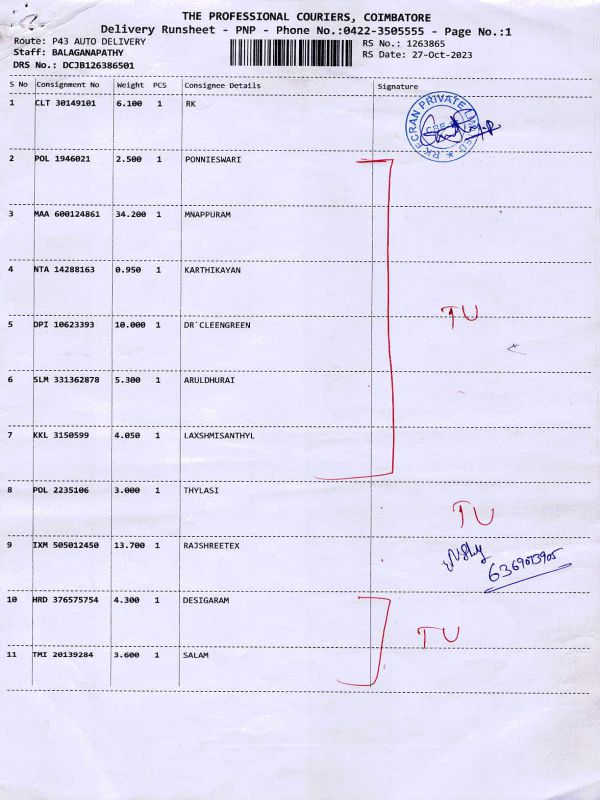 THE PROFESSIONAL COURIERS, COIMBATORE
Delivery Runsheet - PNP - Phone No.:0422-3505555 - Page No.:1
Route: P43 AUTO DELIVERY
RS No.: 1263865
Staff: BALAGANAPATHY
RS Date: 27-Oct-2023
DRS No.: DCJB126386501
S No Consignment No Weight PCS Consignee Details Signature
1 CLT 30149101 6.100 1 RK
RK ECRAN PRIVATE LIMITED
2 POL 1946021 2.500 1 PONNIESWARI
3 MAA 600124861 34.200 1 MNAPPURAM
4 NTA 14288163 0.950 1 KARTHIKAYAN
TU
5 DPI 10623393 10.000 1 DR`CLEENGREEN
6 SLM 331362878 5.300 1 ARULDHURAI
7 KKL 3150599 4.050 1 LAXSHMISANTHYL
8 POL 2235106 3.000 1 THYLASI
TU
9 IXM 505012450 13.700 1 RAJSHREETEX
10 HRD 376575754 4.300 1 DESIGARAM
TU
11 TMI 20139284 3.600 1 SALAM